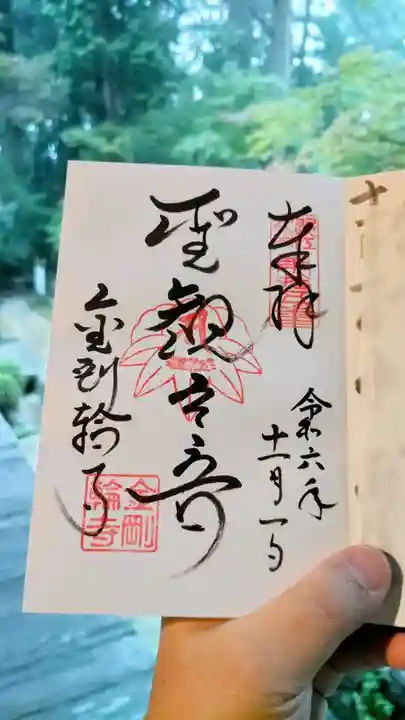 奉拝
令和六年
十一月一日
聖観世音
金剛輪寺
金剛
輪寺